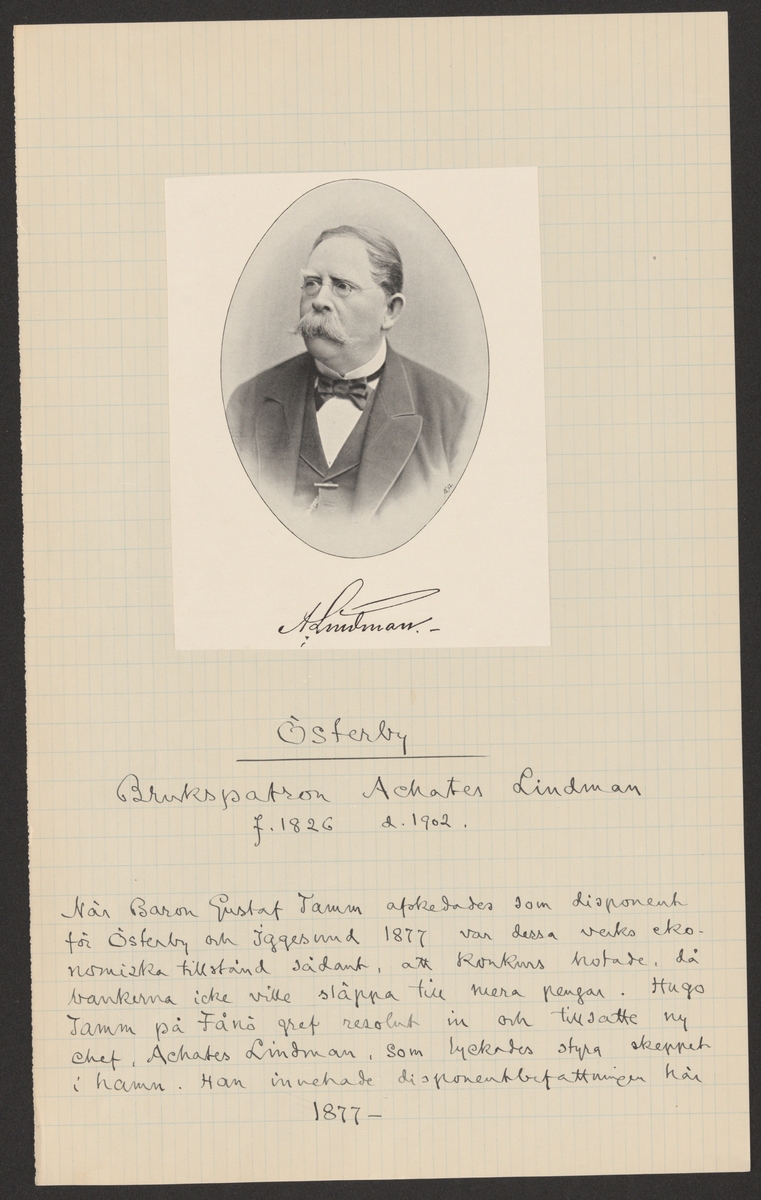 A. Lindman. –
Österby
Brukspatron Achates Lindman
f. 1826 d. 1902.
När Baron Gustaf Tamm afskedades som disponent
för Österby och Iggesund 1877 var dessa verks eko-
nomiska tillstånd sådant, att konkurs hotade, då
bankerna icke ville släppa till mera pengar. Hugo
Tamm på Fånö gref resolut in och tillsatte ny
chef, Achates Lindman, som lyckades styra skeppet
i hamn. Han innehade disponentbefattningen här
1877 –